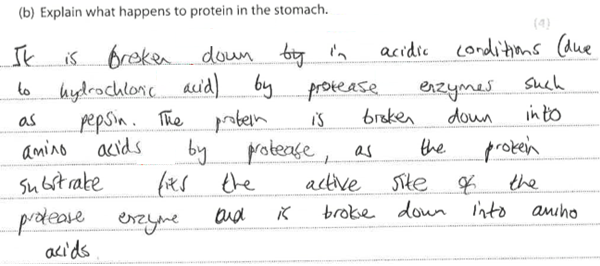 (b) Explain what happens to protein in the stomach.
(4)
It is broken down by in acidic conditions (due
to hydrochloric acid) by protease enzymes such
as pepsin. The protein is broken down into
amino acids by protease, as the protein
substrate fits the active site of the
protease enzyme and is broke down into amino
acids.